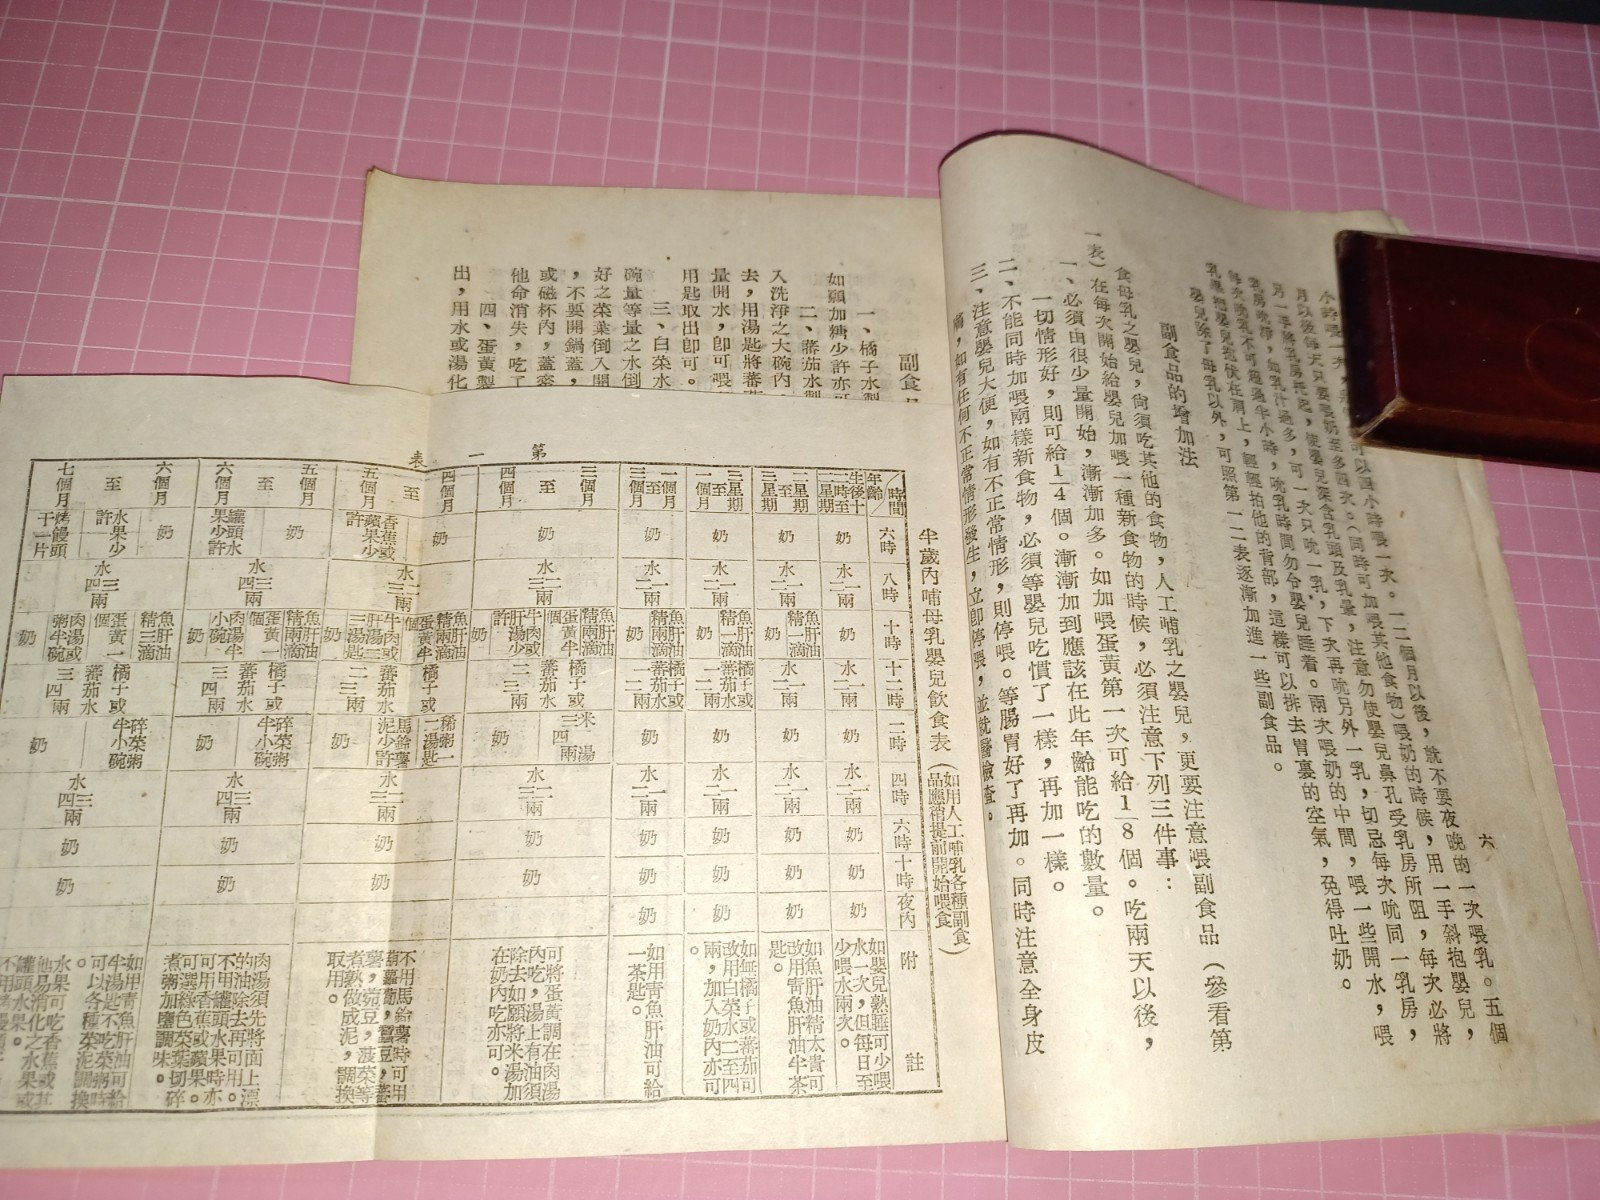 六
時喂一次。一二個月以後，就不要夜晚的一次喂乳。五個
月以後每天只要喂奶至多四次。（同時可加喂其他食物）喂奶的時候，用一手斜抱嬰兒，
另一手將乳房托起，使嬰兒菜含乳頭及乳暈，注意勿使嬰兒鼻孔受乳房所阻，每次必將
乳房吮淨，如乳汁過多，可一次只吮一乳，下次再吮另外一乳，切忌每次吮同一乳房，
每次吮乳不可超過半小時，吮乳時間勿令嬰兒睡着。兩次喂奶的中間，喂一些開水，喂
乳後把嬰兒抱伏在肩上，輕輕拍他的背部，這樣可以排去胃裏的空氣，免得吐奶。
嬰兒除了母乳以外，可照第一二表逐漸加進一些副食品。
副食品的增加法
食母乳之嬰兒，尙須吃其他的食物，人工哺乳之嬰兒，更要注意喂副食品（參看第
一表）在每次開始給嬰兒加喂一種新食物的時候，必須注意下列三件事：
一、必須由很少量開始，漸漸加多。如加喂蛋黃第一次可給1|8個。吃兩天以後，
一切情形好，則可給1|4個。漸漸加到應該在此年齡能吃的數量。
二、不能同時加喂兩樣新食物，必須等嬰兒吃慣了一樣，再加一樣。
三、注意嬰兒大便，如有不正常情形，則停喂。等腸胃好了再加。同時注意全身皮
膚，如有任何不正常情形發生，立卽停喂，並就醫檢查。
副食品
一、橘子水製
如願加糖少許亦可
二、蕃茄水製
入洗淨之大碗內，
去，用湯匙將蕃茄
量開水，卽可喂
用匙取出卽可。
三、白菜水
碗量等量之水倒
好之菜葉倒入開
，不要開鍋蓋，
或磁杯內，蓋蜜
他命消失，吃了
四、蛋黃製
出，用水或湯化
第一表
半歲內哺母乳嬰兒飲食表（如用人工哺乳各種副食品應稍提前開始喂食）
年齡/時間 六時 八時 十時 十二時 二時 四時 六時 十時 夜內 附註
生後十二時至二星期 奶 水一二兩 奶 水一二兩 奶 水一二兩 奶 奶 奶 如嬰兒熟睡可少喂水一次，但每日至少喂水兩次。
二星期至三星期 奶 水一二兩 魚肝油精一滴 奶 水一二兩 奶 水一二兩 奶 奶 奶 如魚肝油精太貴可改用青魚肝油半茶匙。
三星期至一個月 奶 水一二兩 魚肝油精一滴 奶 橘子或蕃茄水一二兩 奶 水一二兩 奶 奶 奶 如無橘子或蕃茄可改用白菜水二至四兩，加入奶內亦可。
一個月至三個月 奶 水一二兩 魚肝油精兩滴 奶 橘子或蕃茄水一二兩 奶 水一二兩 奶 奶 奶 如用青魚肝油可給一茶匙。
三個月至四個月 奶 水二三兩 魚肝油精兩滴 蛋黃半個 牛肉或肝湯少許 奶 橘子或蕃茄水二三兩 米湯三四兩 奶 水二三兩 奶 奶 可將蛋黃調在肉湯內吃，湯上有油須除去如願將米湯加在奶內吃亦可。
四個月至五個月 奶 香蕉或蘋果少許 水二三兩 魚肝油精兩滴 蛋黃半個 牛肉或肝湯三湯匙 奶 橘子或蕃茄水二三兩 稀粥一二湯匙 馬鈴薯泥少許 奶 水二三兩 奶 奶 不用馬鈴薯時可用葫蘿蔔，蠶豆，蕃薯，豌豆，菠菜等煮熟做成泥，調換取用。
五個月至六個月 奶 罐頭水果少許 水三四兩 魚肝油精兩滴 蛋黃一個 肉湯半小碗 奶 橘子或蕃茄水三四兩 碎菜粥半小碗 奶 水三四兩 奶 奶 肉湯須先將面上漂的油除去再可用。不用罐頭水果時亦可用香蕉或蘋果。可選綠色菜葉切碎煮粥加鹽調味。
六個月至七個月 奶 水果少許 烤饅頭干一片 水三四兩 魚肝油精三滴 蛋黃一個 肉湯或粥半碗 奶 橘子或蕃茄水三四兩 碎菜粥半小碗 奶 水三四兩 奶 奶 如用青魚肝油可給半湯匙不吃菜粥時可以各種菜泥調換。水果可吃香蕉或其他易消化之水果或罐頭水果。